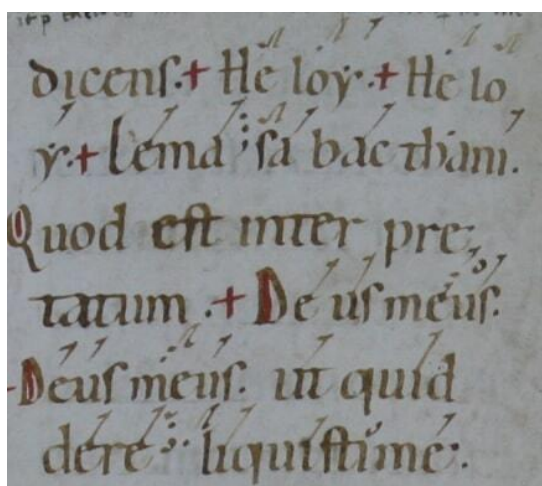 dicens. + Heloy. + Helo
y. + lema sabacthani.
Quod est inter pre
tatum. + Deus meus.
Deus meus. ut quid
dere liquistime.